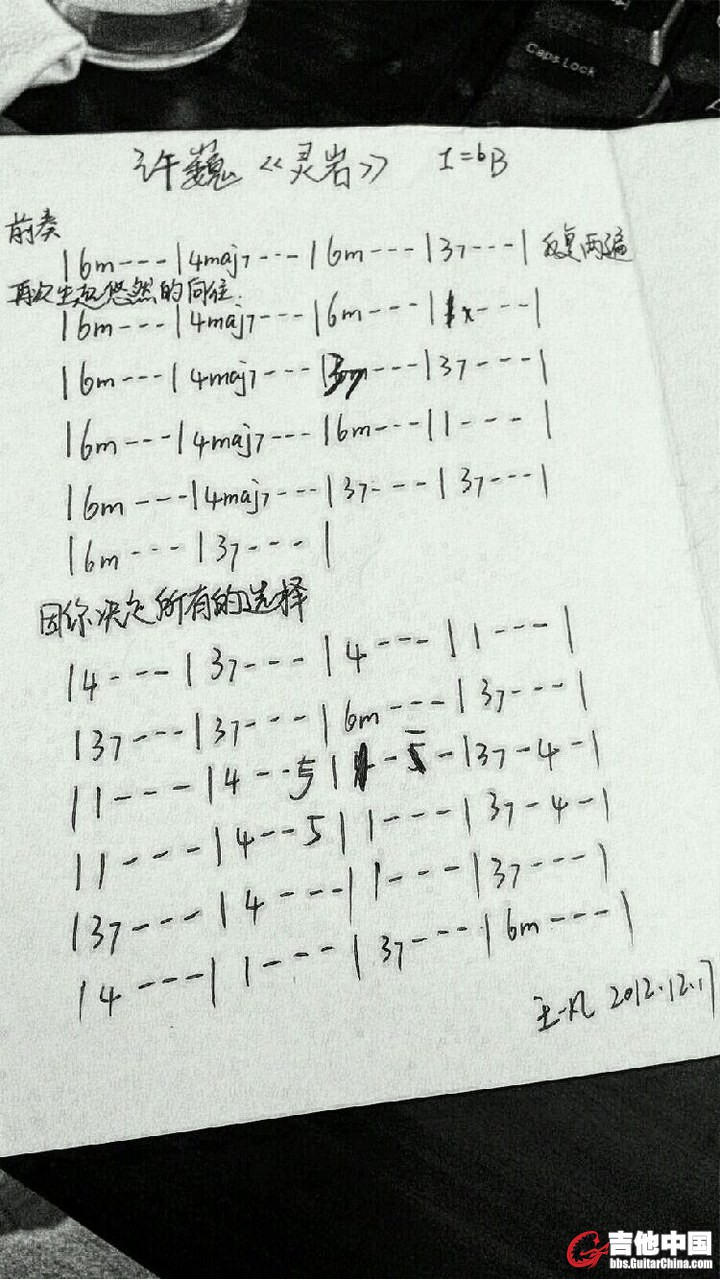 Caps Lock
许巍《灵岩》 1=bB
前奏
|6m---|4maj7---|6m---|37---| 反复两遍
再次生起悠然的向往
|6m---|4maj7---|6m---|1---|
|6m---|4maj7---| ---|37---|
|6m---|4maj7---|6m---|1---|
|6m---|4maj7---|37---|37---|
|6m---|37---|
因你决定所有的选择
|4---|37---|4---|1---|
|37---|37---|6m---|37---|
|1---|4--5|1-5-|37-4-|
|1---|4--5|1---|37-4-|
|37---|4---|1---|37---|
|4---|1---|37---|6m---|
王一凡 2012.12.17
吉他中国
bbs.GuitarChina.com